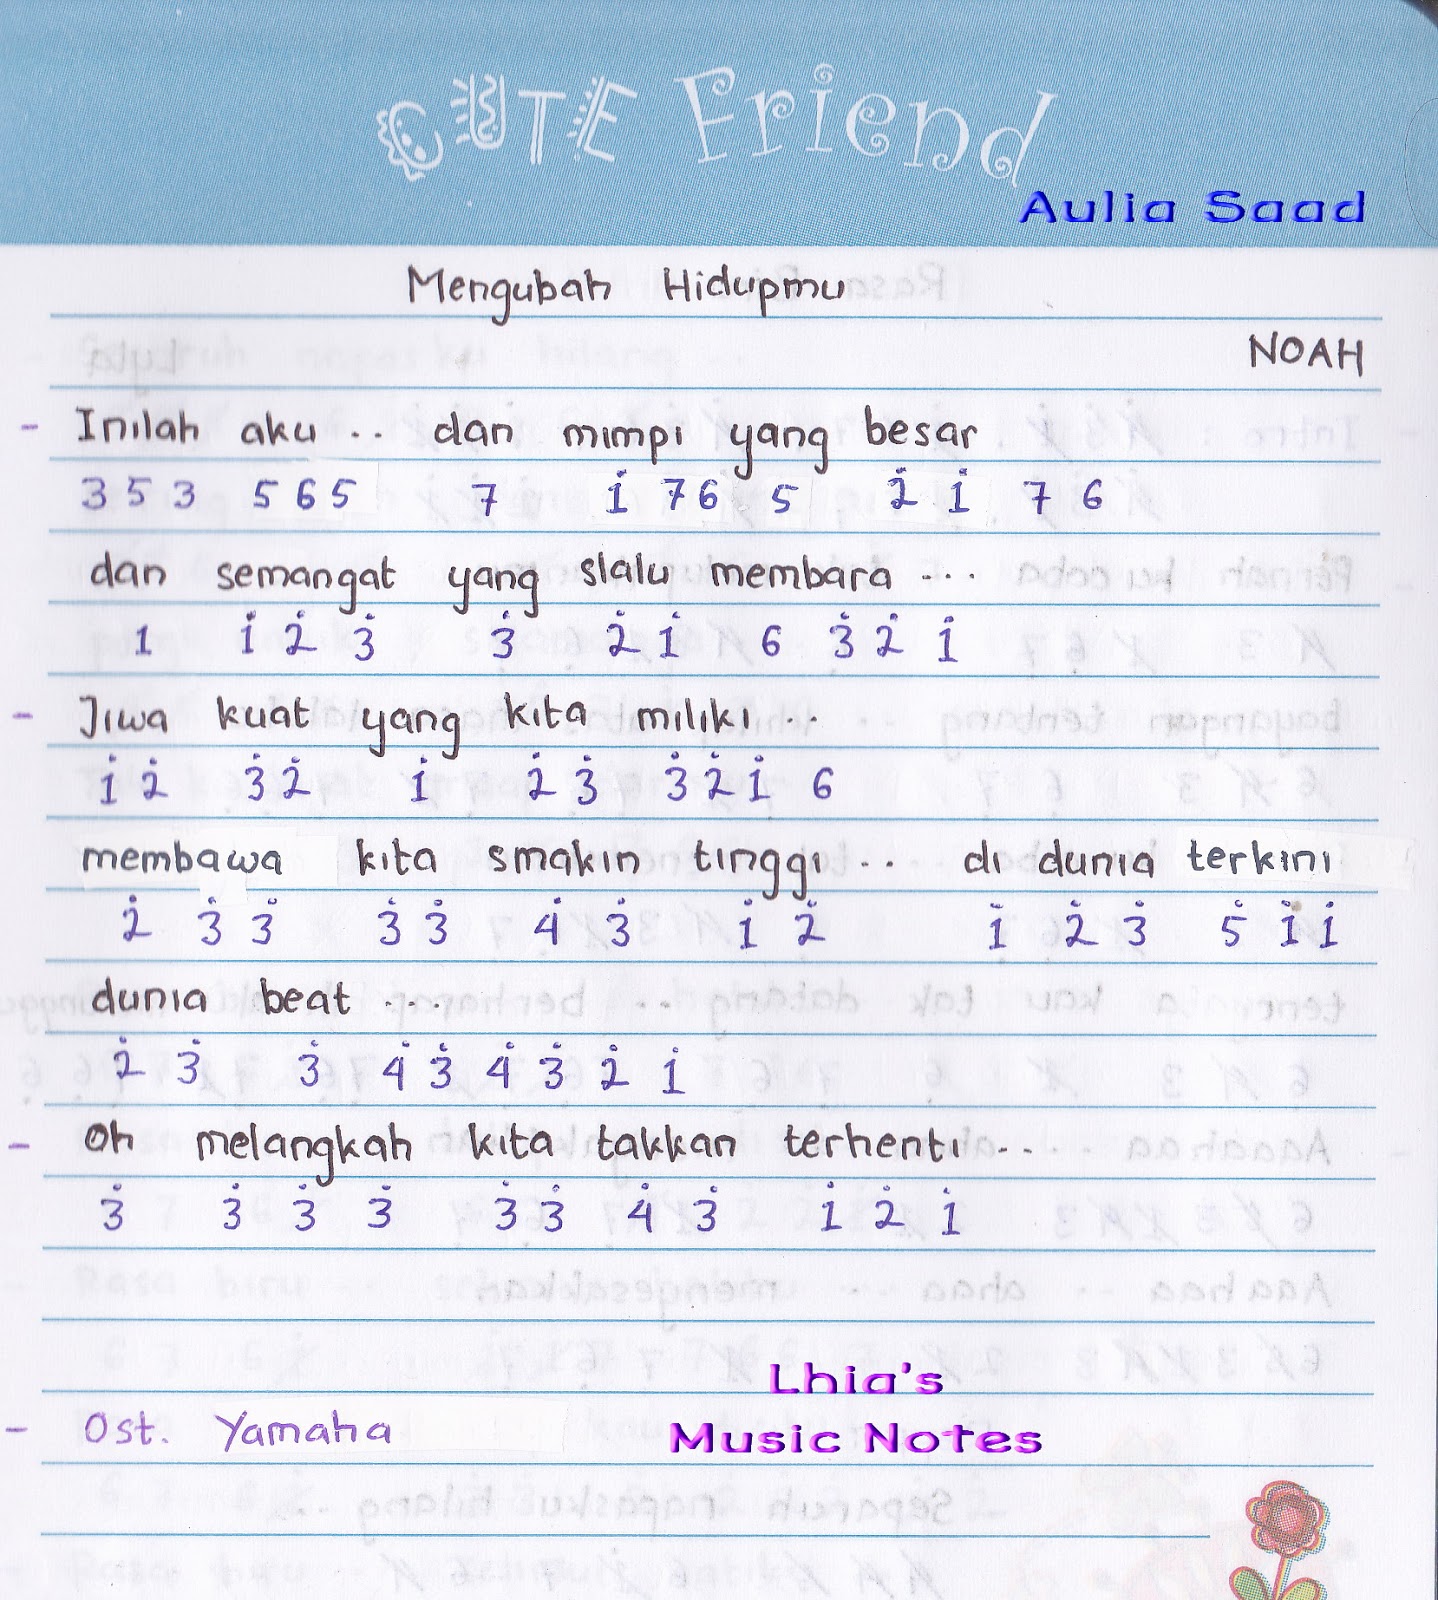 CUTE Friend
Aulia Saad
Mengubah Hidupmu
NOAH
- Inilah aku .. dan mimpi yang besar
3 5 3 5 6 5 7 1̇ 7 6 5 2̇ 1̇ 7 6
dan semangat yang slalu membara ...
1 1̇ 2̇ 3̇ 3̇ 2̇ 1̇ 6 3̇ 2̇ 1̇
- Jiwa kuat yang kita miliki ..
1̇ 2̇ 3̇ 2̇ 1̇ 2̇ 3̇ 3̇ 2̇ 1̇ 6
membawa kita smakin tinggi .. di dunia terkini
2̇ 3̇ 3̇ 3̇ 3̇ 4̇ 3̇ 1̇ 2̇ 1̇ 2̇ 3̇ 5̇ 1̇ 1̇
dunia beat ....
2̇ 3̇ 3̇ 4̇ 3̇ 4̇ 3̇ 2̇ 1̇
- Oh melangkah kita takkan terhenti ...
3̇ 3̇ 3̇ 3̇ 3̇ 3̇ 4̇ 3̇ 1̇ 2̇ 1̇
Lhia's
Music Notes
- Ost. Yamaha